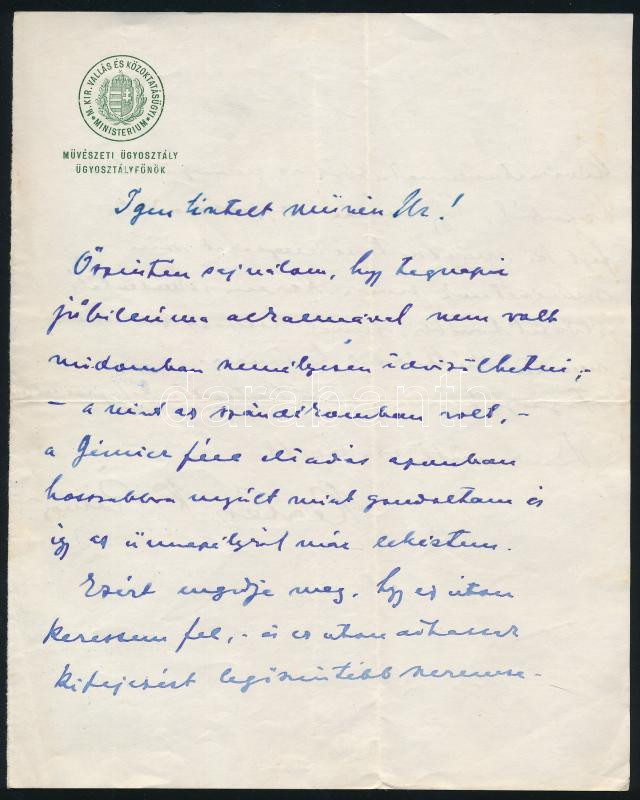 M. KIR. VALLÁS ÉS KÖZOKTATÁSÜGYI MINISTERIUM
MŰVÉSZETI ÜGYOSZTÁLY
ÜGYOSZTÁLYFŐNÖK
Igen tisztelt művész Úr!
Őszintén sajnálom, hogy tegnapi
jubileuma alkalmával nem volt
módomban személyesen üdvözölhetni, -
- a mint az szándékomban volt, -
a Gémier féle előadás azonban
hosszabbra nyúlt mint gondoltam és
így az ünnepélyről már lekéstem.
Ezért engedje meg, hogy ez úton
keressem fel, - és ez úton adhassak
kifejezést legőszintébb szerencse-
darabanth